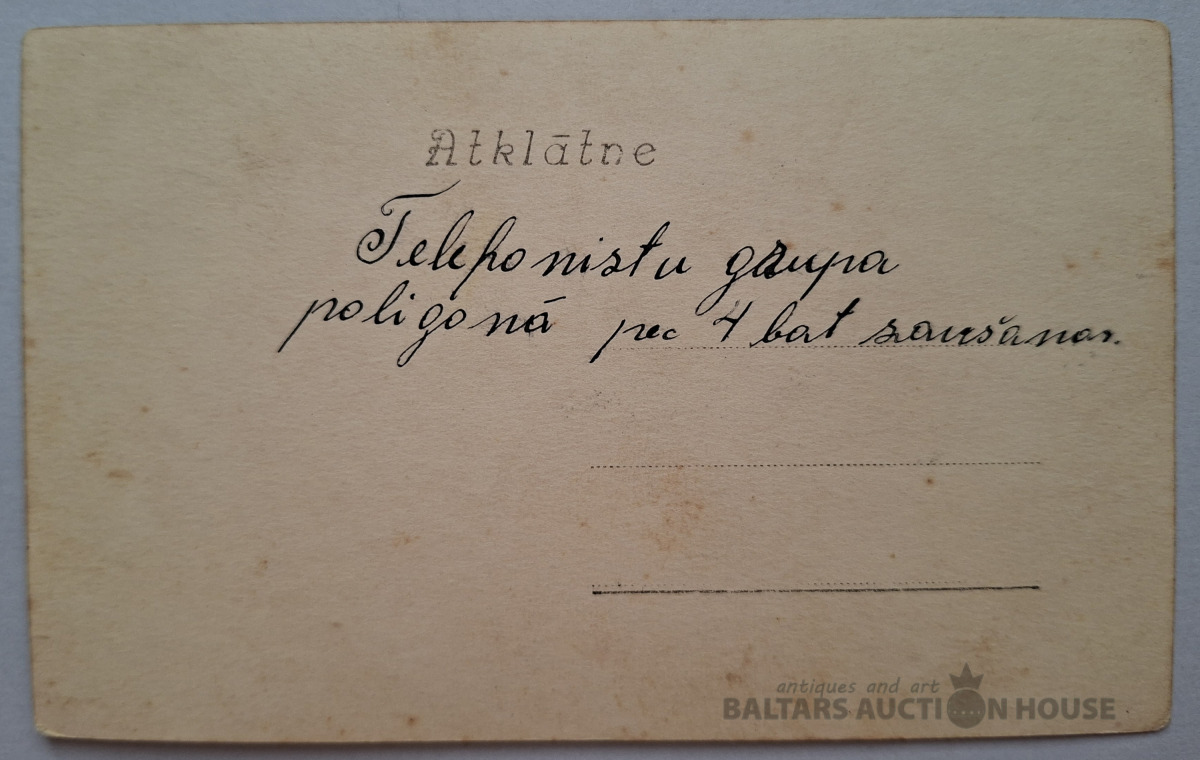 Atklātne
Telefonistu grupa
poligonā pec 4 bat šaušanas.
antiques and art
BALTARS AUCTION HOUSE